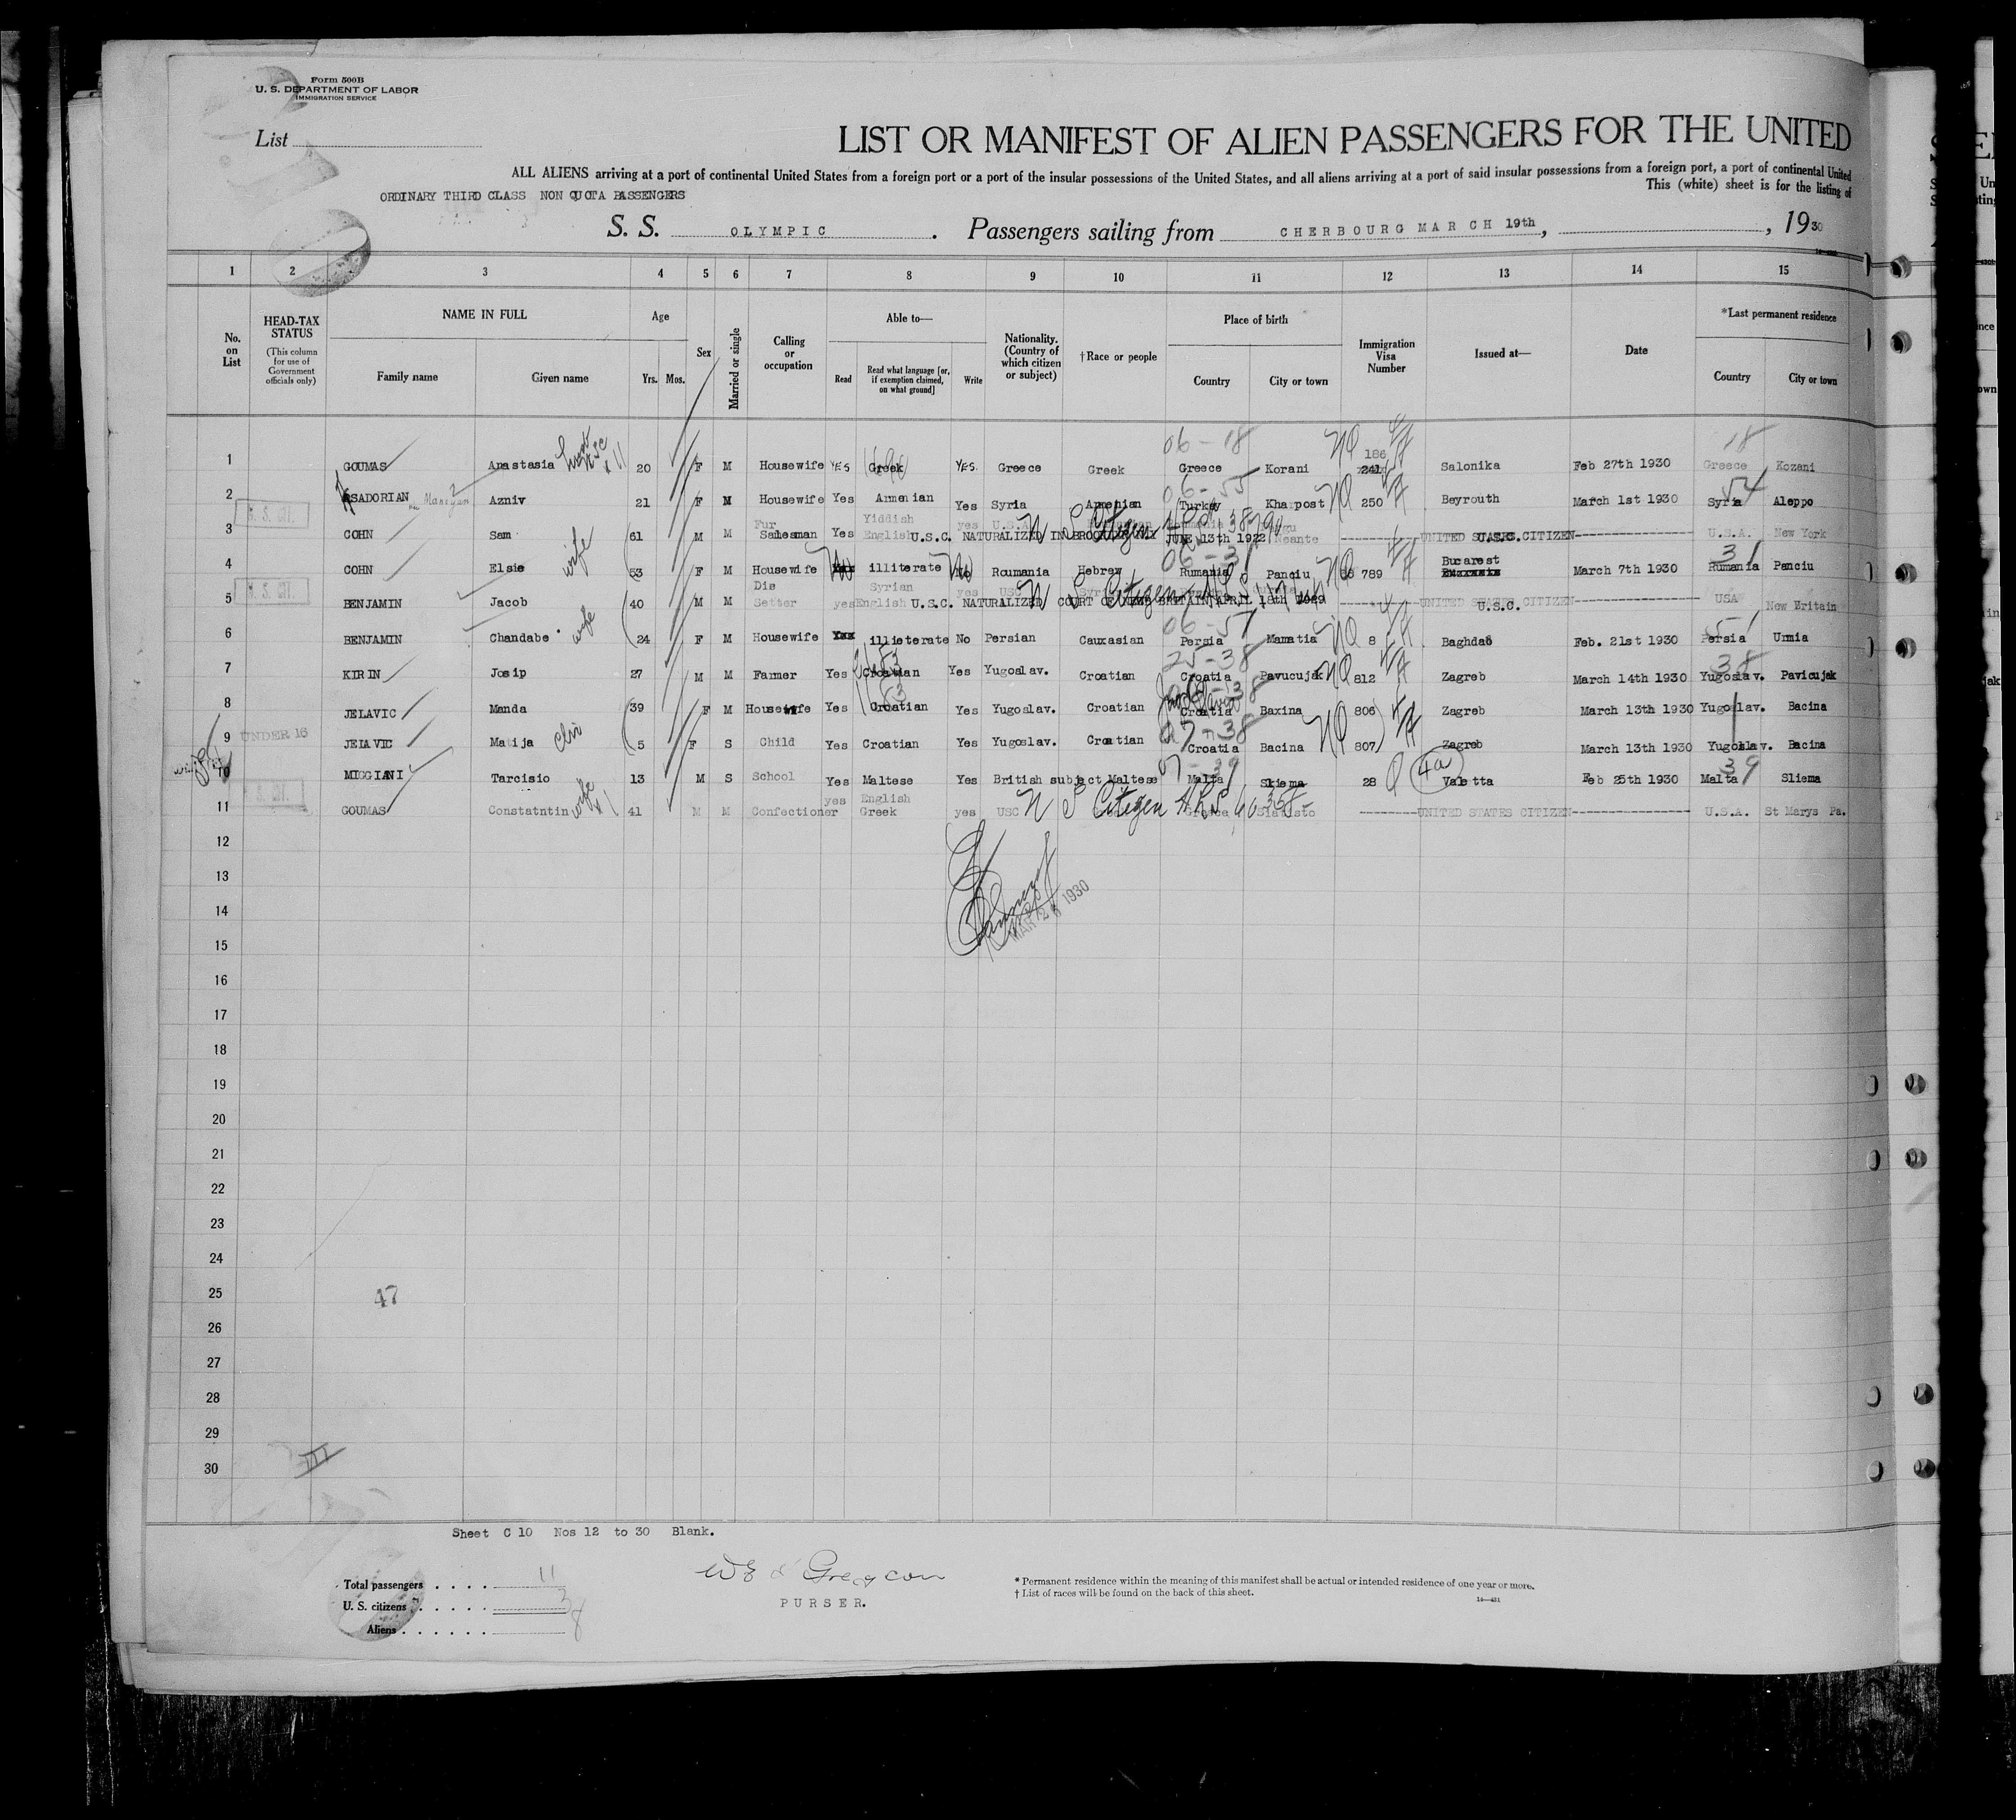 Form 500B
U. S. DEPARTMENT OF LABOR
IMMIGRATION SERVICE
List
LIST OR MANIFEST OF ALIEN PASSENGERS FOR THE UNITED
ALL ALIENS arriving at a port of continental United States from a foreign port or a port of the insular possessions of the United States, and all aliens arriving at a port of said insular possessions from a foreign port, a port of continental United
This (white) sheet is for the listing of
ORDINARY THIRD CLASS NON QUOTA PASSENGERS
S. S. OLYMPIC. Passengers sailing from CHERBOURG MARCH 19th, , 1930
1 2 3 4 5 6 7 8 9 10 11 12 13 14 15
No. on List
HEAD-TAX STATUS (This column for use of Government officials only)
NAME IN FULL Family name Given name
Age Yrs. Mos.
Sex
Married or single
Calling or occupation
Able to— Read Read what language [or, if exemption claimed, on what ground] Write
Nationality. (Country of which citizen or subject)
†Race or people
Place of birth Country City or town
Immigration Visa Number
Issued at—
Date
*Last permanent residence Country City or town
06 - 18 NQ 186 18
1 GOUMAS Anastasia 20 F M Housewife YES Greek YES Greece Greek Greece Korani 241 Salonika Feb 27th 1930 Greece Kozani
06 - 55
2 ASADORIAN Azniv 21 F M Housewife Yes Armenian Yes Syria Armenian Turkey Kharpost NQ 250 Beyrouth March 1st 1930 Syria Aleppo
U. S. CIT. Fur Yiddish yes U.S.A.
3 COHN Sam 61 M M Salesman Yes English U.S.C. NATURALIZED IN BROOKLYN JUNE 13th 1922 UNITED STATES CITIZEN U.S.C. U.S.A. New York
06 - 31 Bucarest 31
4 COHN Elsie wife 53 F M Housewife No illiterate No Roumania Hebrew Rumania Panciu NQ 789 March 7th 1930 Rumania Panciu
U. S. CIT. Die Syrian yes USC
5 BENJAMIN Jacob 40 M M Setter yes English U.S.C. NATURALIZED COURT OF NEW BRITAIN APRIL 18th 1929 UNITED STATES CITIZEN U.S.C. USA New Britain
06 - 51
6 BENJAMIN Chandabe wife 24 F M Housewife illieterate No Persian Cauxasian Persia Mamatia NQ 8 Baghdad Feb. 21st 1930 Persia Urmia
25 - 38 38
7 KIRIN Josip 27 M M Farmer Yes Croatian Yes Yugoslav. Croatian Croatia Pavucujak NQ 812 Zagreb March 14th 1930 Yugoslav. Pavicujak
8 JELAVIC Manda 39 F M Housewife Yes Croatian Yes Yugoslav. Croatian Croatia Baxina 806 Zagreb March 13th 1930 Yugoslav. Bacina
07 - 38
9 UNDER 16 JELAVIC Matija 5 F S Child Yes Croatian Yes Yugoslav. Croatian Croatia Bacina NQ 807 Zagreb March 13th 1930 Yugoslav. Bacina
39
10 MIGGIANI Tarcisio 13 M S School Yes Maltese Yes British subject Maltese Malta Sliema 28 Q 4a Valetta Feb 25th 1930 Malta Sliema
U. S. CIT. yes English
11 GOUMAS Constatntin wife x 1 41 M M Confectioner Greek yes USC U S Citizen Greece Siatisto UNITED STATES CITIZEN U.S.A. St Marys Pa.
12
13
14
MAR 26 1930
15
16
17
18
19
20
21
22
23
24
25
47
26
27
28
29
III
30
Sheet C 10 Nos 12 to 30 Blank.
Total passengers 11
U. S. citizens 3
Aliens 8
PURSER.
* Permanent residence within the meaning of this manifest shall be actual or intended residence of one year or more.
† List of races will be found on the back of this sheet.
14—431